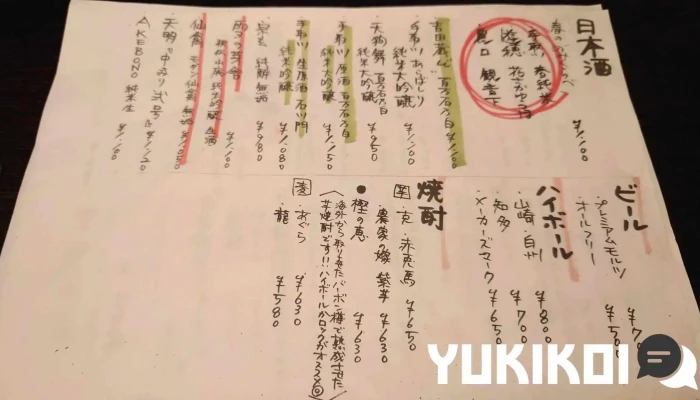 日本酒
春の
¥1,100
吉田蔵 百万石乃白 ¥1,100
手取川 あらばしり
純米大吟醸 ¥1,100
天狗舞 百万石乃白
純米大吟醸 ¥950
手取川 原酒 百万石乃白
純米大吟醸 ¥1,150
手取川 生原酒 石川門
純米吟醸 ¥1,080
宗玄 純米 ¥980
¥1,100
仙禽 モダン仙禽 無垢 ¥1,050
天明 中取り 弐号 ¥1,120
AKEBONO 純米 生 ¥1,100
ビール
・プレミアムモルツ
・オールフリー ¥500
ハイボール
・山崎・白州 ¥800
・知多 ¥700
・メーカーズマーク ¥650
焼酎
芋 ・克・赤兎馬 ¥650
・農家の嫁 紫芋 ¥630
・樫の恵 ¥630
海外から取りよせたバーボン樽で熟成させた
芋焼酎です!!ハイボールかロックがオススメ
麦 ・おぐら ¥630
・龍 ¥580
YUKIKOI